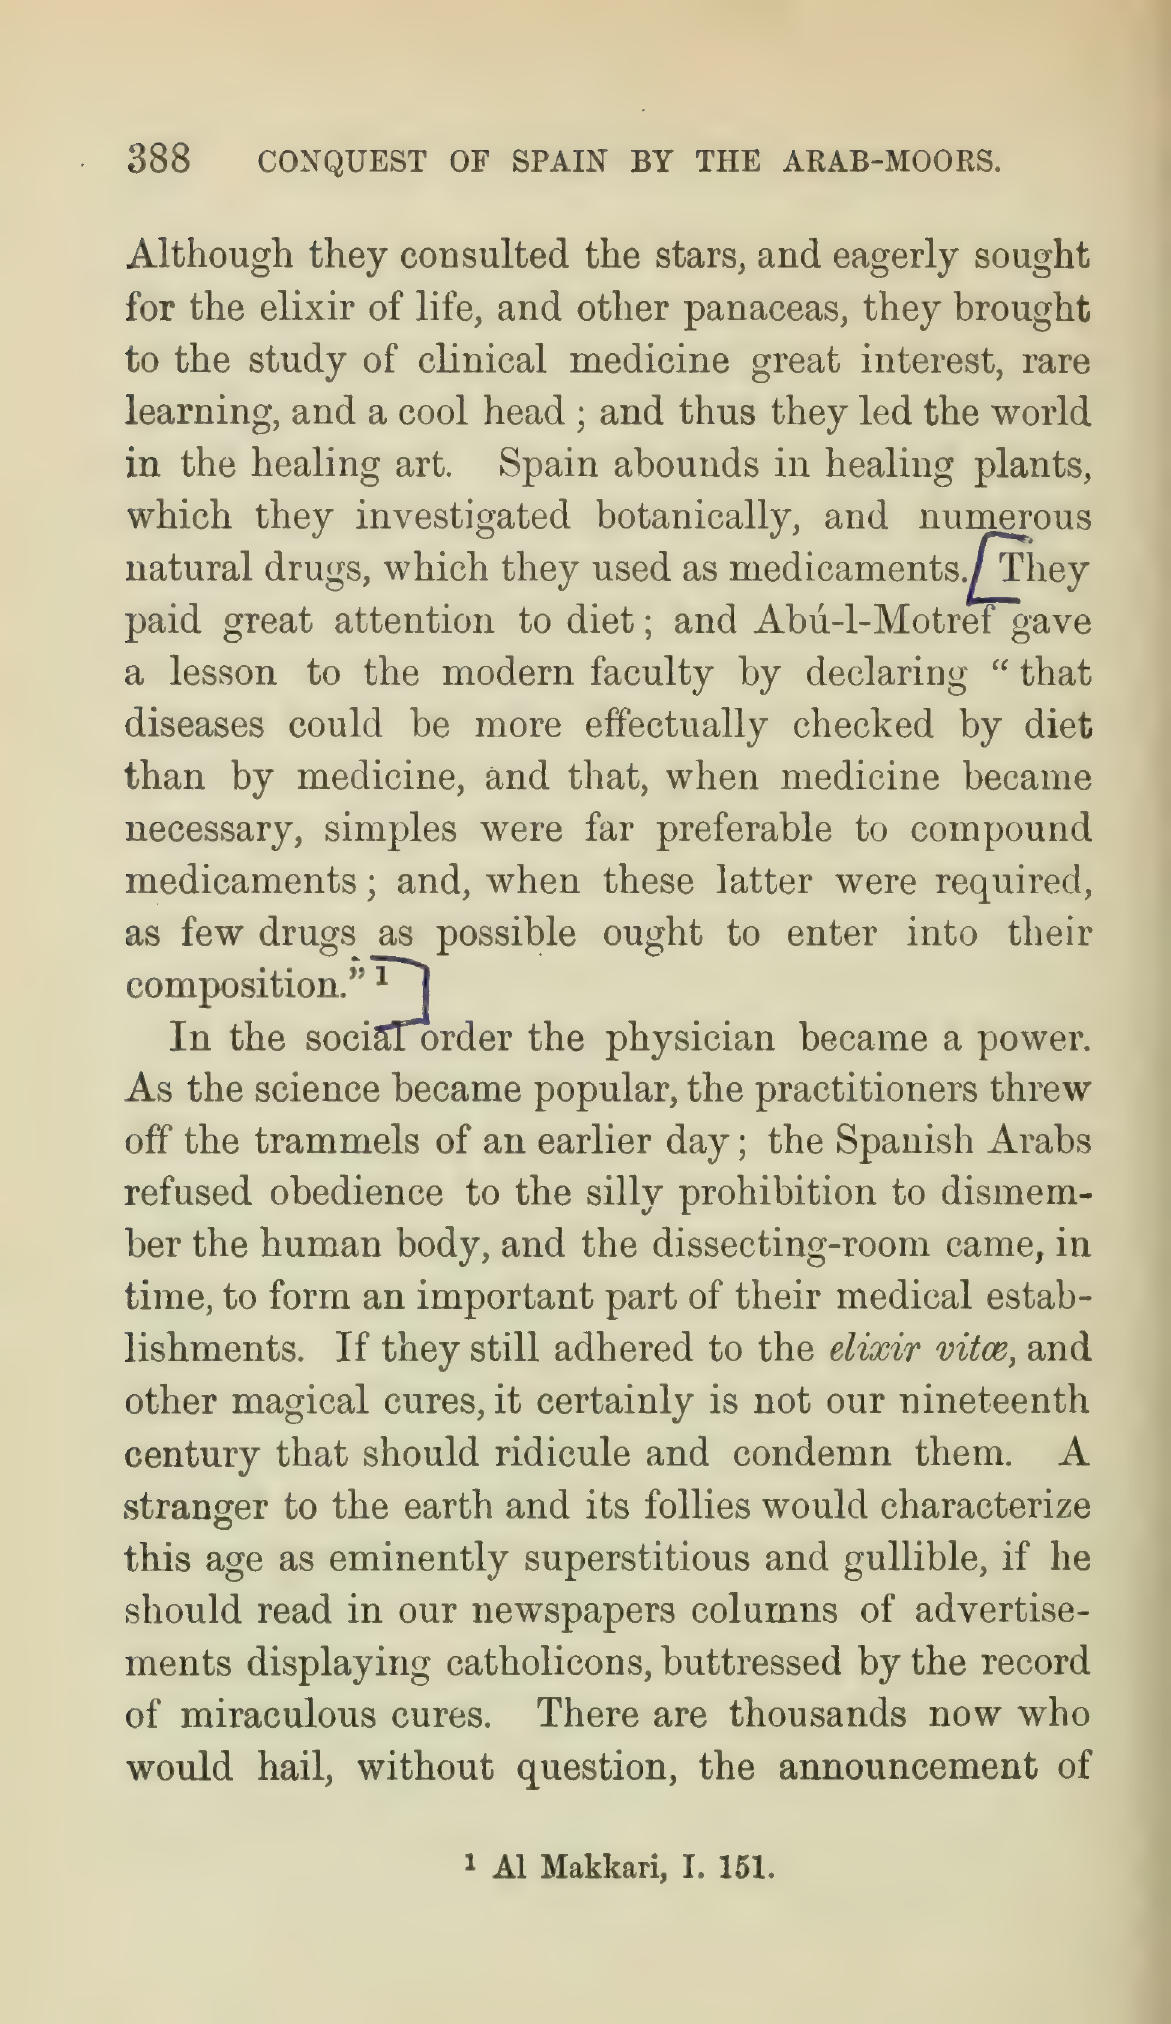 388 CONQUEST OF SPAIN BY THE ARAB-MOORS.
Although they consulted the stars, and eagerly sought
for the elixir of life, and other panaceas, they brought
to the study of clinical medicine great interest, rare
learning, and a cool head ; and thus they led the world
in the healing art. Spain abounds in healing plants,
which they investigated botanically, and numerous
natural drugs, which they used as medicaments. [They
paid great attention to diet ; and Abú-l-Motref gave
a lesson to the modern faculty by declaring “ that
diseases could be more effectually checked by diet
than by medicine, and that, when medicine became
necessary, simples were far preferable to compound
medicaments ; and, when these latter were required,
as few drugs as possible ought to enter into their
composition.” ¹]
In the social order the physician became a power.
As the science became popular, the practitioners threw
off the trammels of an earlier day ; the Spanish Arabs
refused obedience to the silly prohibition to dismem-
ber the human body, and the dissecting-room came, in
time, to form an important part of their medical estab-
lishments. If they still adhered to the elixir vitœ, and
other magical cures, it certainly is not our nineteenth
century that should ridicule and condemn them. A
stranger to the earth and its follies would characterize
this age as eminently superstitious and gullible, if he
should read in our newspapers columns of advertise-
ments displaying catholicons, buttressed by the record
of miraculous cures. There are thousands now who
would hail, without question, the announcement of
¹ Al Makkari, I. 151.